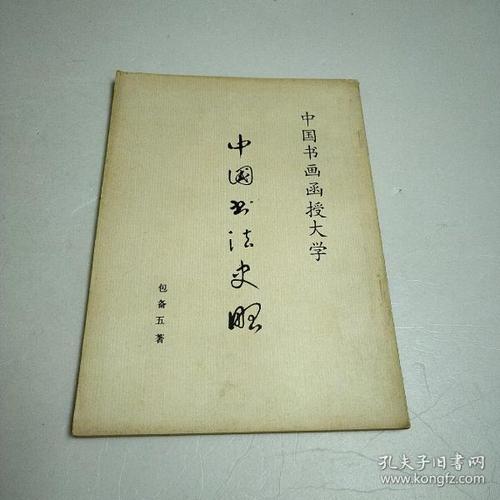 中国书画函授大学
中国书法史略
包备五著
孔夫子旧书网
www.kongfz.com